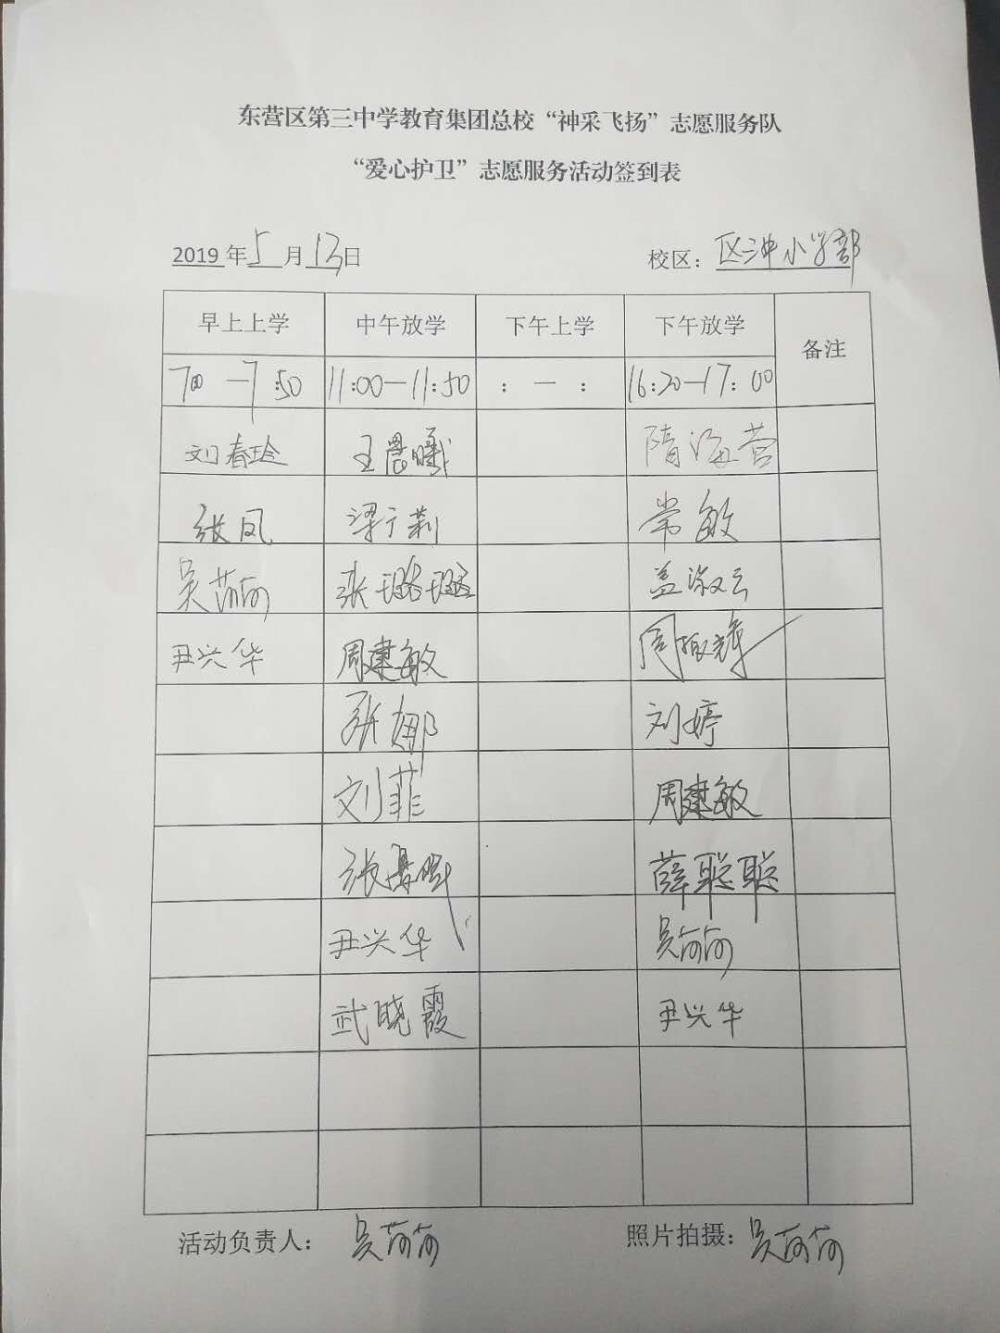 东营区第三中学教育集团总校“神采飞扬”志愿服务队
“爱心护卫”志愿服务活动签到表
2019年5月13日 校区：区三中小学部
早上上学 中午放学 下午上学 下午放学 备注
7:00—7:50 11:00—11:50 : — : 16:20—17:00
刘春玲 王晨曦 隋海营
张凤 梁广莉 常敏
吴莎莎 张璐璐 盖淑云
尹兴华 周建敏 周振华
张娜 刘婷
刘菲 周建敏
薛聪聪
尹兴华
武晓霞 尹兴华
活动负责人： 照片拍摄：